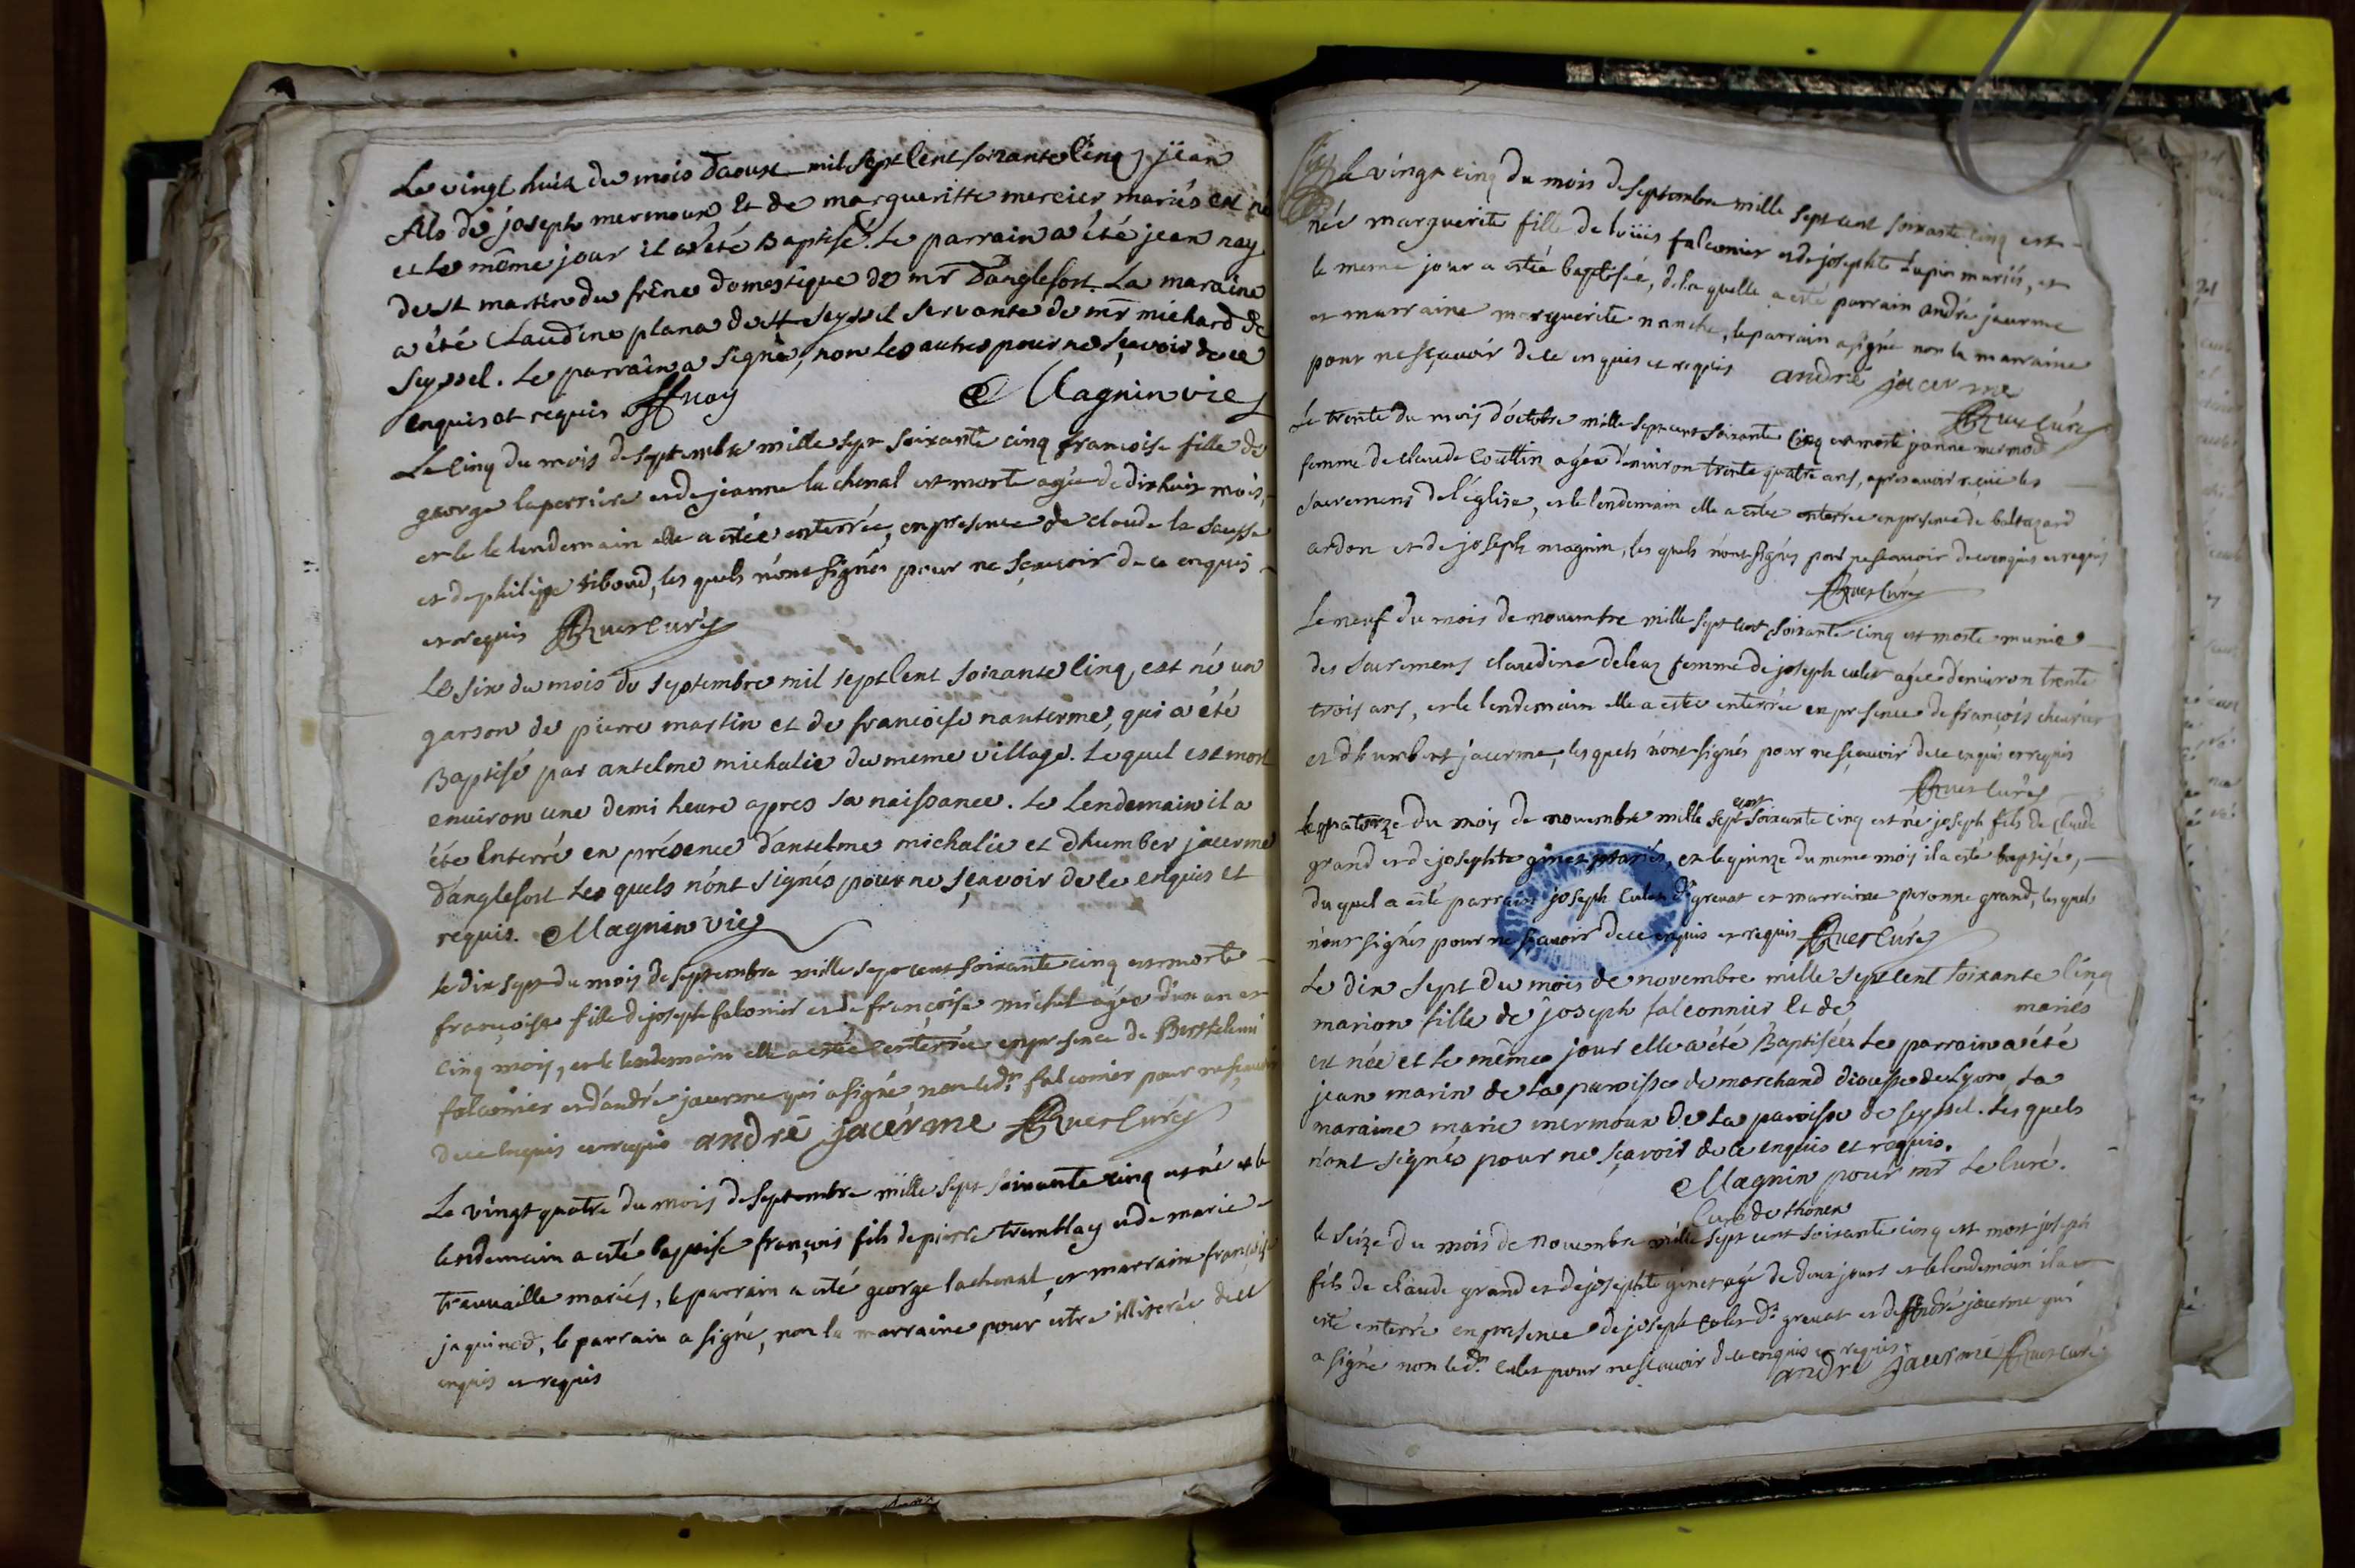 Le vingt huit du mois Daoust mil sept Cent soixante Cinq jean
fils de joseph mermoux Et de margueritte mercier mariés est né
et le même jour il a été Baptisé. Le parrain a été jean nay
de st martin du frêne domestique de mr Danglefort. La maraine
a été Claudine plana de Seyssel servante de mr michard de
Seyssel. Le parrain a signé, non les autres pour ne sçavoir de ce
enquis et requis nay Magnin vic
Le Cinq du mois de septembre mille sept soixante cinq francoise fille de
george laperriere et de jeanne la chenal est morte agée de dixhuit mois,
et le le lendemain elle a estée enterrée, en presence de claude la sausse
et de philipe tiboud, les quels n'ont signés pour ne sçavoir de ce enquis
et requis Ruer Curé
Le six du mois de septembre mil sept Cent soixante Cinq, est né un
garson de pierre martin et de francoise nanterme, qui a été
Baptisé par antelme michalie du meme village. Lequel est mort
environ une demi heure apres sa naissance. Le Lendemain il a
été Enterré en présence d'antelme michalie et dhumber jacerme
d'anglefort Les quels n'ont signés pour ne sçavoir de ce enquis et
requis. Magnin vic
Le dix sept du mois de septembre mille sept cent soixante cinq est morte
françoise fille de joseph falconier et de françoise michel agée d'un an et
cinq mois, et le lendemain elle a estée enterrée en presence de Berthelemi
falconier et d'andré jacerme qui a signé, non led. falconier pour ne sçavoir
de ce Enquis et requis andré jacérme Ruer Curé
Le vingt quatre du mois de septembre mille sept soixante cinq est né et le
lendemain a esté baptisé françois fils de pierre tremblay et de marie
travaille mariés, le parrain a esté george lachenal, et marraine françoise
jaquinod, le parrain a signé, non la marraine pour estre illiterée de ce
enquis et requis
le vingt cinq du mois de septembre mille sept cent soixante cinq est
née marguerite fille de loüis falconier et de josephte Lupin mariés, et
le meme jour a estée baptisée, de la quelle a esté parrain andré jacerme
et marraine marguerite nanche, le parrain a signé non la marraine
pour ne sçavoir de ce enquis et requis andré jacerme
Ruer Curé
Le trente du mois d'octobre mille sept cent soixante Cinq est morte janne mermod
femme de claude Couttin agée d'environ trente quatre ans, apres avoir reçüe les
sacremens de l'église, et le lendemain elle a estée enterrée en presence de baltazard
ardon et de joseph magnin, les quels n'ont signés pour ne sçavoir de ce enquis et requis
Ruer Curé
Le neuf du mois de novembre mille sept cent soixante cinq est morte munie
des sacremens claudine deleaz femme de joseph culet agée d'environ trente
trois ans, et le lendemain elle a estée enterrée en presence de françois chevrier
et dhumbert jacerme, les quels n'ont signés pour ne sçavoir de ce enquis et requis
Ruer Curé
Le quatorze du mois de novembre mille sept cent soixante cinq est né joseph fils de Claude
grand et de josephte ginet mariés, et le quinze du meme mois il a esté baptisé,
du quel a esté parrain joseph Culet dt grevat et marraine peronne grand, les quels
n'ont signés pour ne sçavoir de ce enquis et requis Ruer Curé
Le dix sept du mois de novembre mille sept Cent soixante Cinq
marion fille de joseph falconnier Et de mariés
est née et le même jour elle a été Baptisée Le parrain a été
jean marin de la paroisse de marchand diocesse de Lyon, La
maraine marie mermoux de La paroisse de Seyssel. Les quels
n'ont signés pour ne sçavoir de ce enquis et requis.
Magnin pour mr Le Curé.
Curé de thonex
le seize du mois de novembre mille sept cent soixante cinq est mort joseph
fils de claude grand et de josephte ginet agé de deux jours et le lendemain il a
esté enterré en presence de joseph Culet dt grevat et d'andré jacerme qui
a signé non led. Culet pour ne sçavoir de ce enquis et requis.
andré jacermé Ruer Curé